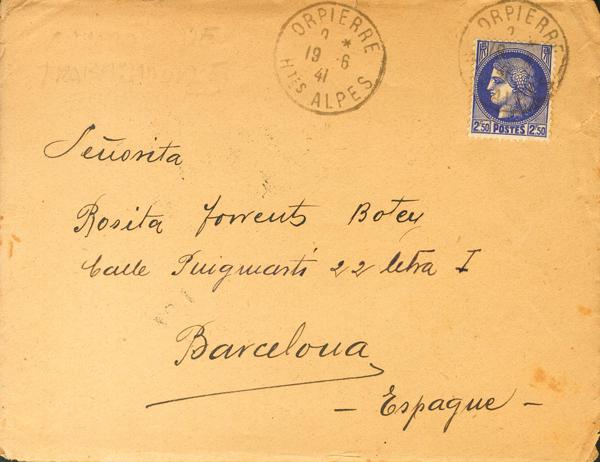 ORPIERRE
2 *
19 -6
41
HTES ALPES
ORPIERRE
2
19
RF
2'50 POSTES 2'50
Señorita
Rosita Torrents Botey
Calle Puigmartí 22 letra I
Barcelona
- Espagne -